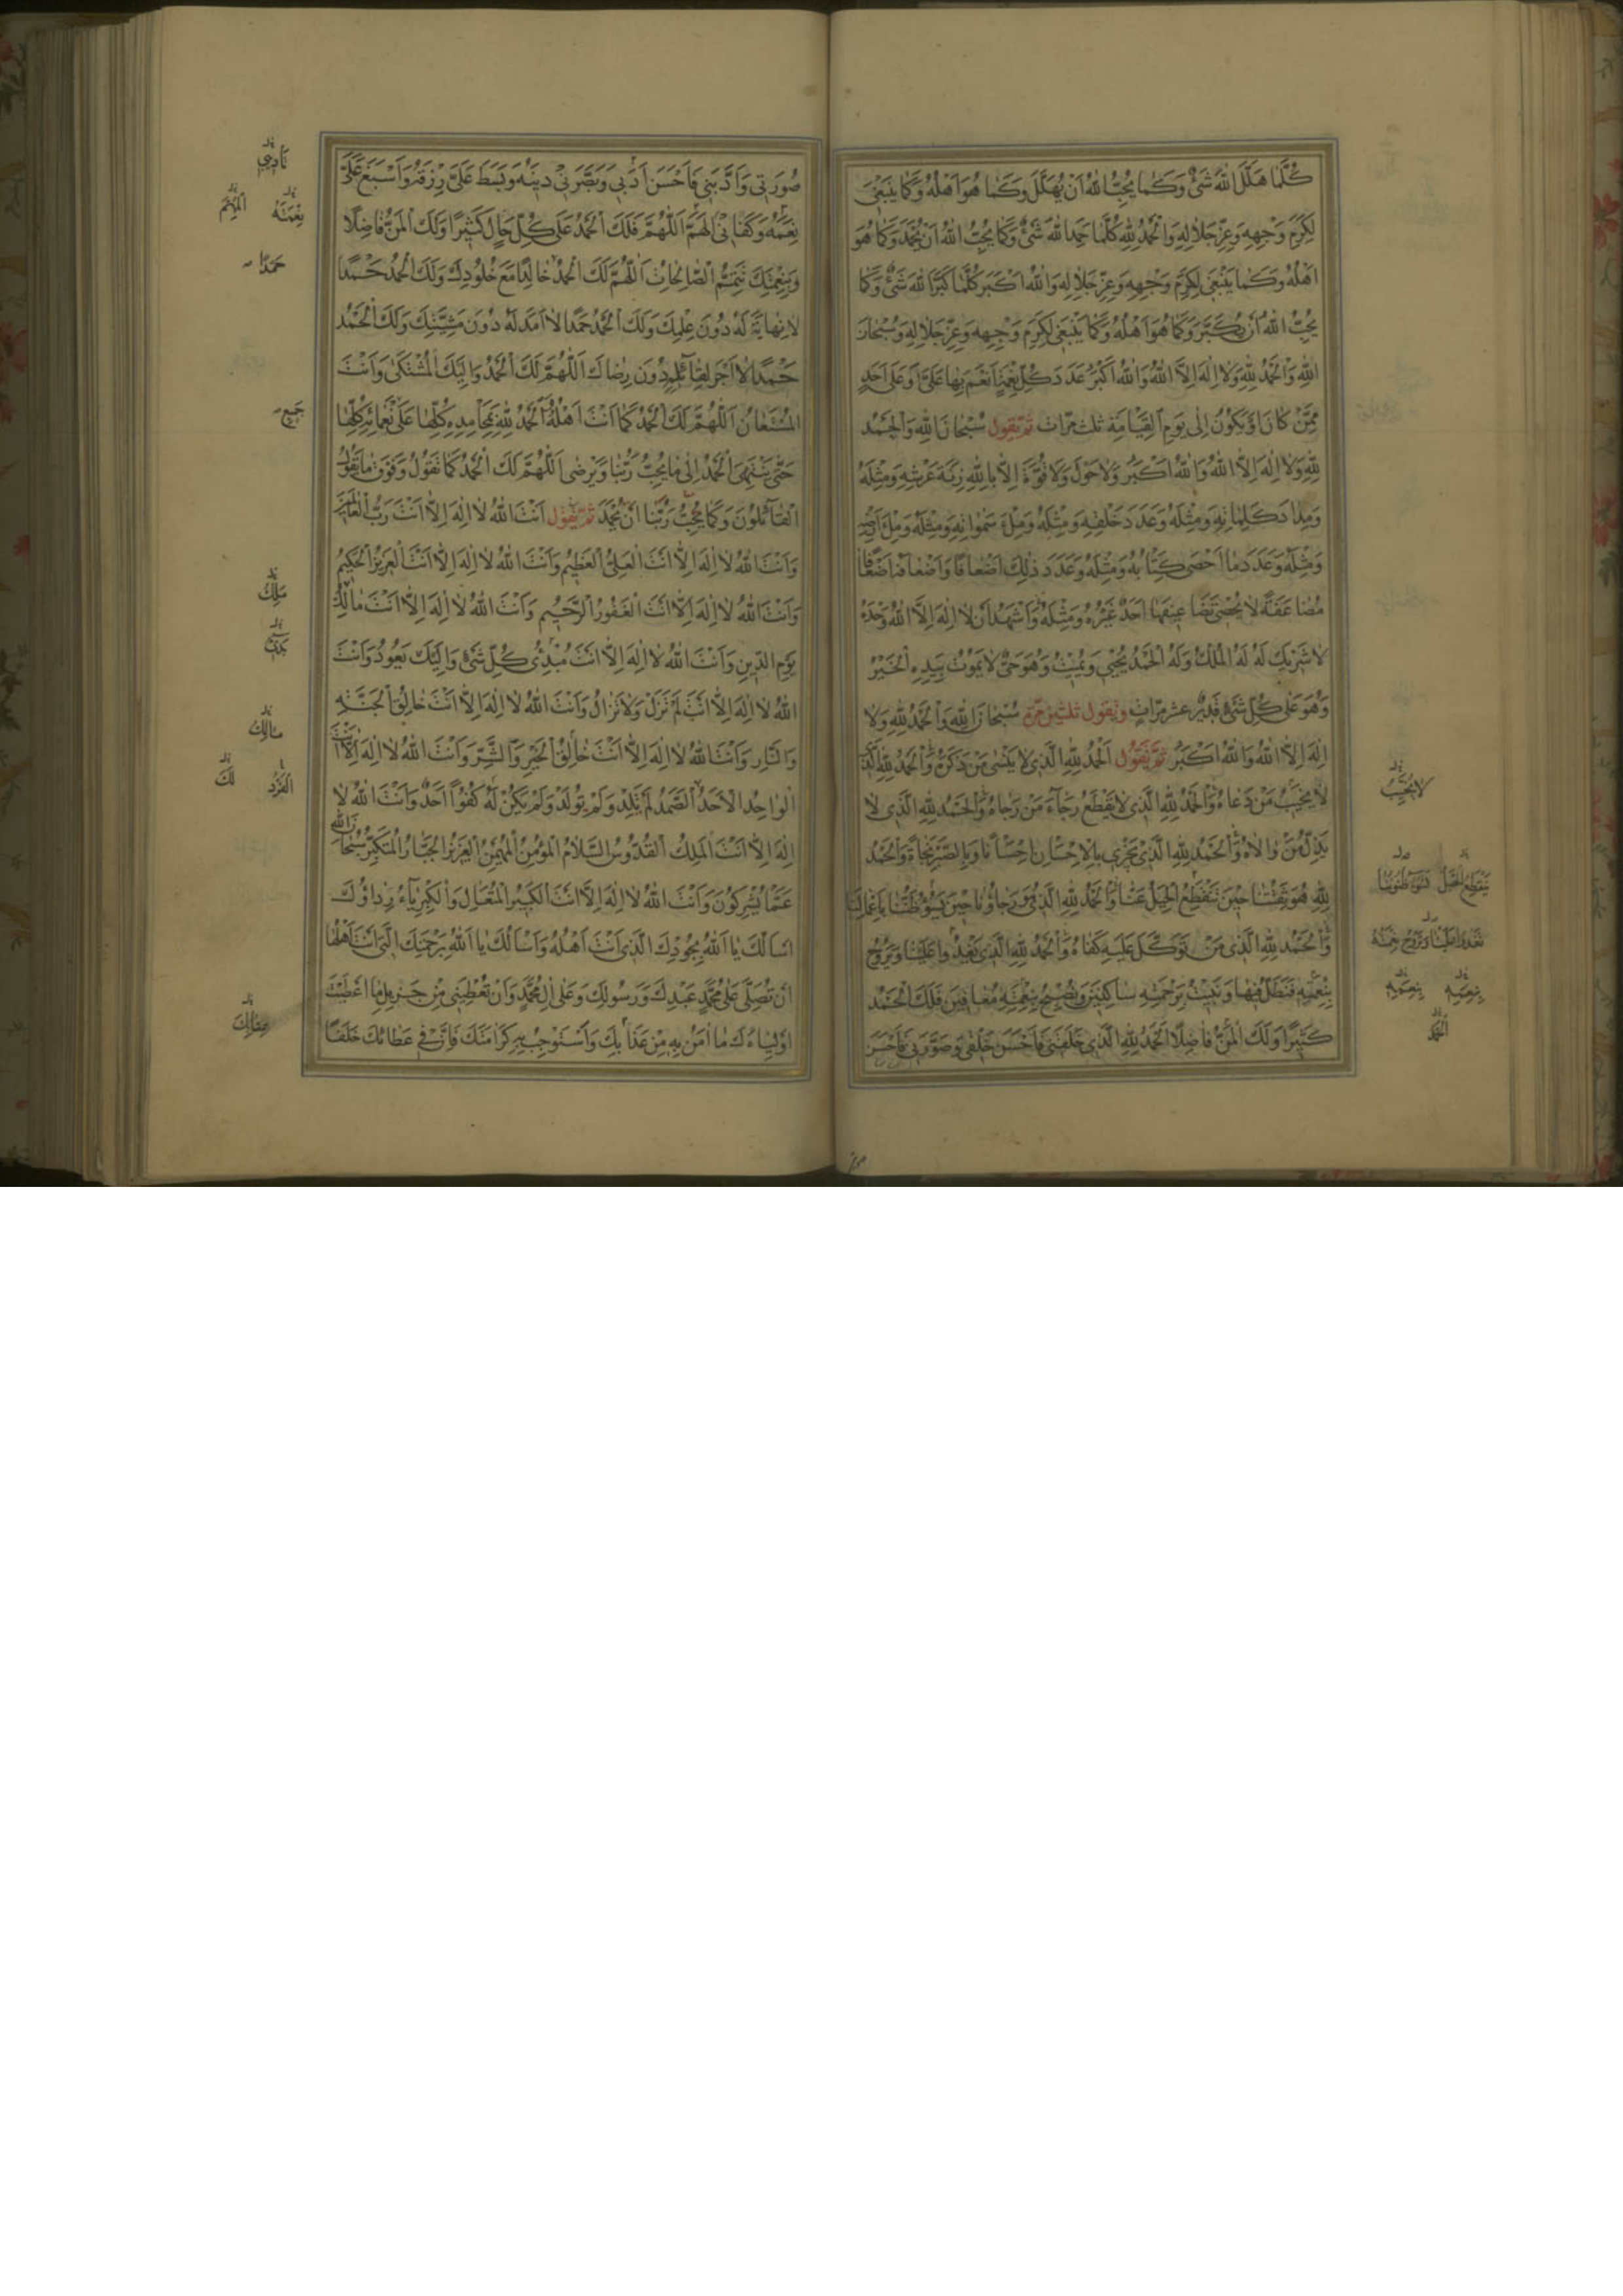 كُلَّمَا هَلَّلَ اللهَ شَيْءٌ وَكَمَا يُحِبُّ اللهُ أَنْ يُهَلَّلَ وَكَمَا هُوَ أَهْلُهُ وَكَمَا يَنْبَغِي
لِكَرَمِ وَجْهِهِ وَعِزِّ جَلَالِهِ وَالْحَمْدُ لِلّٰهِ كُلَّمَا حَمِدَ اللهَ شَيْءٌ وَكَمَا يُحِبُّ اللهُ أَنْ يُحْمَدَ وَكَمَا هُوَ
أَهْلُهُ وَكَمَا يَنْبَغِي لِكَرَمِ وَجْهِهِ وَعِزِّ جَلَالِهِ وَاللهُ أَكْبَرُ كُلَّمَا كَبَّرَ اللهَ شَيْءٌ وَكَمَا
يُحِبُّ اللهُ أَنْ يُكَبَّرَ وَكَمَا هُوَ أَهْلُهُ وَكَمَا يَنْبَغِي لِكَرَمِ وَجْهِهِ وَعِزِّ جَلَالِهِ وَسُبْحَانَ
اللهِ وَالْحَمْدُ لِلّٰهِ وَلَا إِلَهَ إِلَّا اللهُ وَاللهُ أَكْبَرُ عَدَدَ كُلِّ نِعْمَةٍ أَنْعَمَ بِهَا عَلَيَّ أَوْ عَلَى أَحَدٍ
مِمَّنْ كَانَ أَوْ يَكُونُ إِلَى يَوْمِ الْقِيَامَةِ ثلث مرّات ثُمَّ تقول سُبْحَانَ اللهِ وَالْحَمْدُ
لِلّٰهِ وَلَا إِلَهَ إِلَّا اللهُ وَاللهُ أَكْبَرُ وَلَا حَوْلَ وَلَا قُوَّةَ إِلَّا بِاللهِ زِنَةَ عَرْشِهِ وَمِثْلَهُ
وَمِدَادَ كَلِمَاتِهِ وَمِثْلَهُ وَعَدَدَ خَلْقِهِ وَمِثْلَهُ وَمِلْءَ سَمٰوَاتِهِ وَمِثْلَهُ وَمِلْءَ أَرْضِهِ
وَمِثْلَهُ وَعَدَدَ مَا أَحْصَى كِتَابُهُ وَمِثْلَهُ وَعَدَدَ ذٰلِكَ أَضْعَافًا وَأَضْعَافَهُ أَضْعَافًا
مُضَاعَفَةً لَا يُحْصِي تَضَاعِيفَهَا أَحَدٌ غَيْرُهُ وَمِثْلَهُ وَأَشْهَدُ أَنْ لَا إِلَهَ إِلَّا اللهُ وَحْدَهُ
لَا شَرِيكَ لَهُ لَهُ الْمُلْكُ وَلَهُ الْحَمْدُ يُحْيِي وَيُمِيتُ وَهُوَ حَيٌّ لَا يَمُوتُ بِيَدِهِ الْخَيْرُ
وَهُوَ عَلَى كُلِّ شَيْءٍ قَدِيرٌ عشر مرّات وتقول ثلثين مرّة سُبْحَانَ اللهِ وَالْحَمْدُ لِلّٰهِ وَلَا
إِلَهَ إِلَّا اللهُ وَاللهُ أَكْبَرُ ثُمَّ تَقُولُ الْحَمْدُ لِلّٰهِ الَّذِي لَا يَنْسَى مَنْ ذَكَرَهُ وَالْحَمْدُ لِلّٰهِ الَّذِي
لَا يُخَيِّبُ مَنْ دَعَاهُ وَالْحَمْدُ لِلّٰهِ الَّذِي لَا يَقْطَعُ رَجَاءَ مَنْ رَجَاهُ وَالْحَمْدُ لِلّٰهِ الَّذِي لَا
يُذِلُّ مَنْ وَالَاهُ وَالْحَمْدُ لِلّٰهِ الَّذِي يَجْزِي بِالْإِحْسَانِ إِحْسَانًا وَبِالصَّبْرِ نَجَاةً وَالْحَمْدُ
لِلّٰهِ هُوَ ثِقَتُنَا حِينَ تَنْقَطِعُ الْحِيَلُ عَنَّا وَالْحَمْدُ لِلّٰهِ الَّذِي هُوَ رَجَاؤُنَا حِينَ يَسُوءُ ظَنُّنَا بِأَعْمَالِنَا
وَالْحَمْدُ لِلّٰهِ الَّذِي مَنْ تَوَكَّلَ عَلَيْهِ كَفَاهُ وَالْحَمْدُ لِلّٰهِ الَّذِي يَغْدُو عَلَيْنَا وَيَرُوحُ
بِنِعَمِهِ فَنَظَلُّ فِيهَا وَنَبِيتُ بِرَحْمَتِهِ سَاكِنِينَ وَنُصْبِحُ بِنِعْمَتِهِ مُعَافَيْنَ فَلَكَ الْحَمْدُ
كَثِيرًا وَلَكَ الْمَنُّ فَاضِلًا الْحَمْدُ لِلّٰهِ الَّذِي خَلَقَنِي فَأَحْسَنَ خَلْقِي وَصَوَّرَنِي فَأَحْسَنَ
لَا يُخَيِّبُ
بِنِعَمِهِ
صُورَتِي وَأَدَّبَنِي فَأَحْسَنَ أَدَبِي وَبَصَّرَنِي دِينَهُ وَبَسَطَ عَلَيَّ رِزْقَهُ وَأَسْبَغَ عَلَيَّ
نِعَمَهُ وَكَفَانِي الْهَمَّ اللّٰهُمَّ فَلَكَ الْحَمْدُ عَلَى كُلِّ حَالٍ كَثِيرًا وَلَكَ الْمَنُّ فَاضِلًا
وَبِنِعْمَتِكَ تَتِمُّ الصَّالِحَاتُ اللّٰهُمَّ لَكَ الْحَمْدُ خَالِدًا مَعَ خُلُودِكَ وَلَكَ الْحَمْدُ حَمْدًا
لَا نِهَايَةَ لَهُ دُونَ عِلْمِكَ وَلَكَ الْحَمْدُ حَمْدًا لَا أَمَدَ لَهُ دُونَ مَشِيَّتِكَ وَلَكَ الْحَمْدُ
حَمْدًا لَا أَجْرَ لِقَائِلِهِ دُونَ رِضَاكَ اللّٰهُمَّ لَكَ الْحَمْدُ وَإِلَيْكَ الْمُشْتَكَى وَأَنْتَ
الْمُسْتَعَانُ اللّٰهُمَّ لَكَ الْحَمْدُ كَمَا أَنْتَ أَهْلُهُ الْحَمْدُ لِلّٰهِ بِمَحَامِدِهِ كُلِّهَا عَلَى نَعْمَائِهِ كُلِّهَا
حَتَّى يَنْتَهِيَ الْحَمْدُ إِلَى مَا يُحِبُّ رَبُّنَا وَيَرْضَى اللّٰهُمَّ لَكَ الْحَمْدُ كَمَا نَقُولُ وَفَوْقَ مَا يَقُولُ
الْقَائِلُونَ وَكَمَا يُحِبُّ رَبُّنَا أَنْ يُحْمَدَ ثُمَّ تَقُول أَنْتَ اللهُ لَا إِلَهَ إِلَّا أَنْتَ رَبُّ الْعَالَمِينَ
وَأَنْتَ اللهُ لَا إِلَهَ إِلَّا أَنْتَ الْعَلِيُّ الْعَظِيمُ وَأَنْتَ اللهُ لَا إِلَهَ إِلَّا أَنْتَ الْعَزِيزُ الْحَكِيمُ
وَأَنْتَ اللهُ لَا إِلَهَ إِلَّا أَنْتَ الْغَفُورُ الرَّحِيمُ وَأَنْتَ اللهُ لَا إِلَهَ إِلَّا أَنْتَ مَالِكُ
يَوْمِ الدِّينِ وَأَنْتَ اللهُ لَا إِلَهَ إِلَّا أَنْتَ مُبْدِئُ كُلِّ شَيْءٍ وَإِلَيْكَ يَعُودُ وَأَنْتَ
اللهُ لَا إِلَهَ إِلَّا أَنْتَ لَمْ تَزَلْ وَلَا تَزَالُ وَأَنْتَ اللهُ لَا إِلَهَ إِلَّا أَنْتَ خَالِقُ الْجَنَّةِ
وَالنَّارِ وَأَنْتَ اللهُ لَا إِلَهَ إِلَّا أَنْتَ خَالِقُ الْخَيْرِ وَالشَّرِّ وَأَنْتَ اللهُ لَا إِلَهَ إِلَّا أَنْتَ
الْوَاحِدُ الْأَحَدُ الصَّمَدُ لَمْ يَلِدْ وَلَمْ يُولَدْ وَلَمْ يَكُنْ لَهُ كُفُوًا أَحَدٌ وَأَنْتَ اللهُ لَا
إِلَهَ إِلَّا أَنْتَ الْمَلِكُ الْقُدُّوسُ السَّلَامُ الْمُؤْمِنُ الْمُهَيْمِنُ الْعَزِيزُ الْجَبَّارُ الْمُتَكَبِّرُ سُبْحَانَ اللهِ
عَمَّا يُشْرِكُونَ وَأَنْتَ اللهُ لَا إِلَهَ إِلَّا أَنْتَ الْكَبِيرُ الْمُتَعَالِ وَالْكِبْرِيَاءُ رِدَاؤُكَ
أَسْأَلُكَ يَا اللهُ بِجُودِكَ الَّذِي أَنْتَ أَهْلُهُ وَأَسْأَلُكَ يَا اللهُ بِرَحْمَتِكَ الَّتِي أَنْتَ أَهْلُهَا
أَنْ تُصَلِّيَ عَلَى مُحَمَّدٍ عَبْدِكَ وَرَسُولِكَ وَعَلَى آلِ مُحَمَّدٍ وَأَنْ تُعْطِيَنِي مِنْ جَزِيلِ مَا أَعْطَيْتَ
أَوْلِيَاءَكَ مَا آمَنُ بِهِ مِنْ عَذَابِكَ وَأَسْتَوْجِبُ بِهِ كَرَامَتَكَ فَإِنَّ فِي عَطَائِكَ خَلَفًا
نِعْمَتَهُ
حَمْدًا
جَمِيعِ
مَلِكُ
مَالِكُ
الْفَرْدُ لَكَ